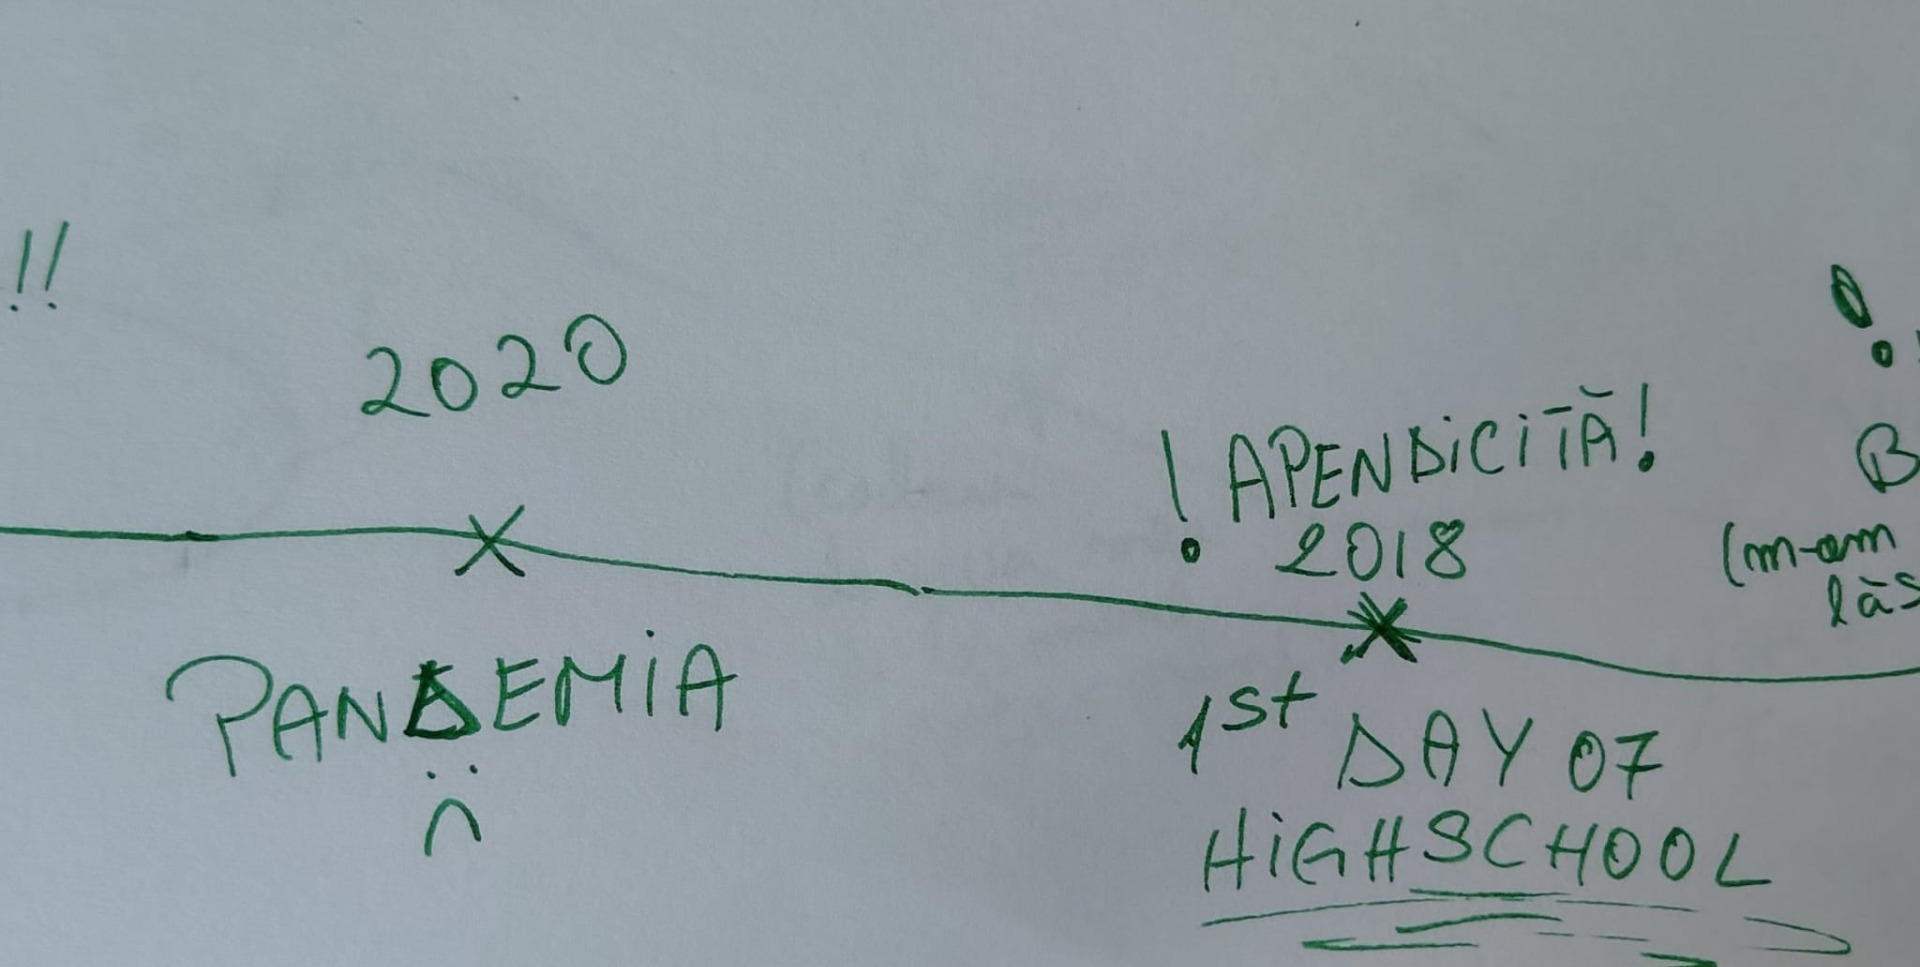 !!
2020
PANDEMIA
:(
! APENDICITĂ!
2018
1st DAY OF
HIGHSCHOOL
!
B
(m-am
lăs